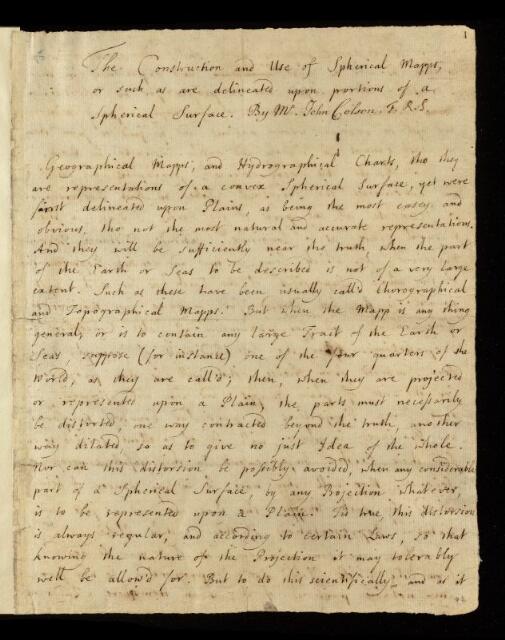 1
The Construction and Use of Spherical Mapps,
or such as are delineated upon portions of a
Spherical Surface. By Mr. John Colson. F.R.S.
Geographical Mapps, and Hydrographical Charts, tho they
are representations of a convex Spherical Surface, yet were
first delineated upon Plains, as being the most easey and
obvious, tho not the most natural and accurate representations.
And they will be sufficiently near the truth, when the part
of the Earth or Seas to be described is not of a very large
extent. Such as these have been usually call'd Chorographical
and Topographical Mapps. But when the Mapp is any thing
general, or is to contain any large Tract of the Earth or
Seas, suppose (for instance) one of the four quarters of the
World, as they are call'd; then, when they are projected
or represented upon a Plain, the parts must necessarily
be distorted, one way contracted beyond the truth, another
way dilated, so as to give no just Idea of the whole.
Nor can this distorsion be possibly avoided, when any considerable
part of a Spherical Surface, by any Projection whatever,
is to be represented upon a Plain. Tis true, this distorsion
is always regular, and according to certain Laws, so that
knowing the nature of the Projection it may tolerably
well be allow'd for. But to do this scientifically and as it